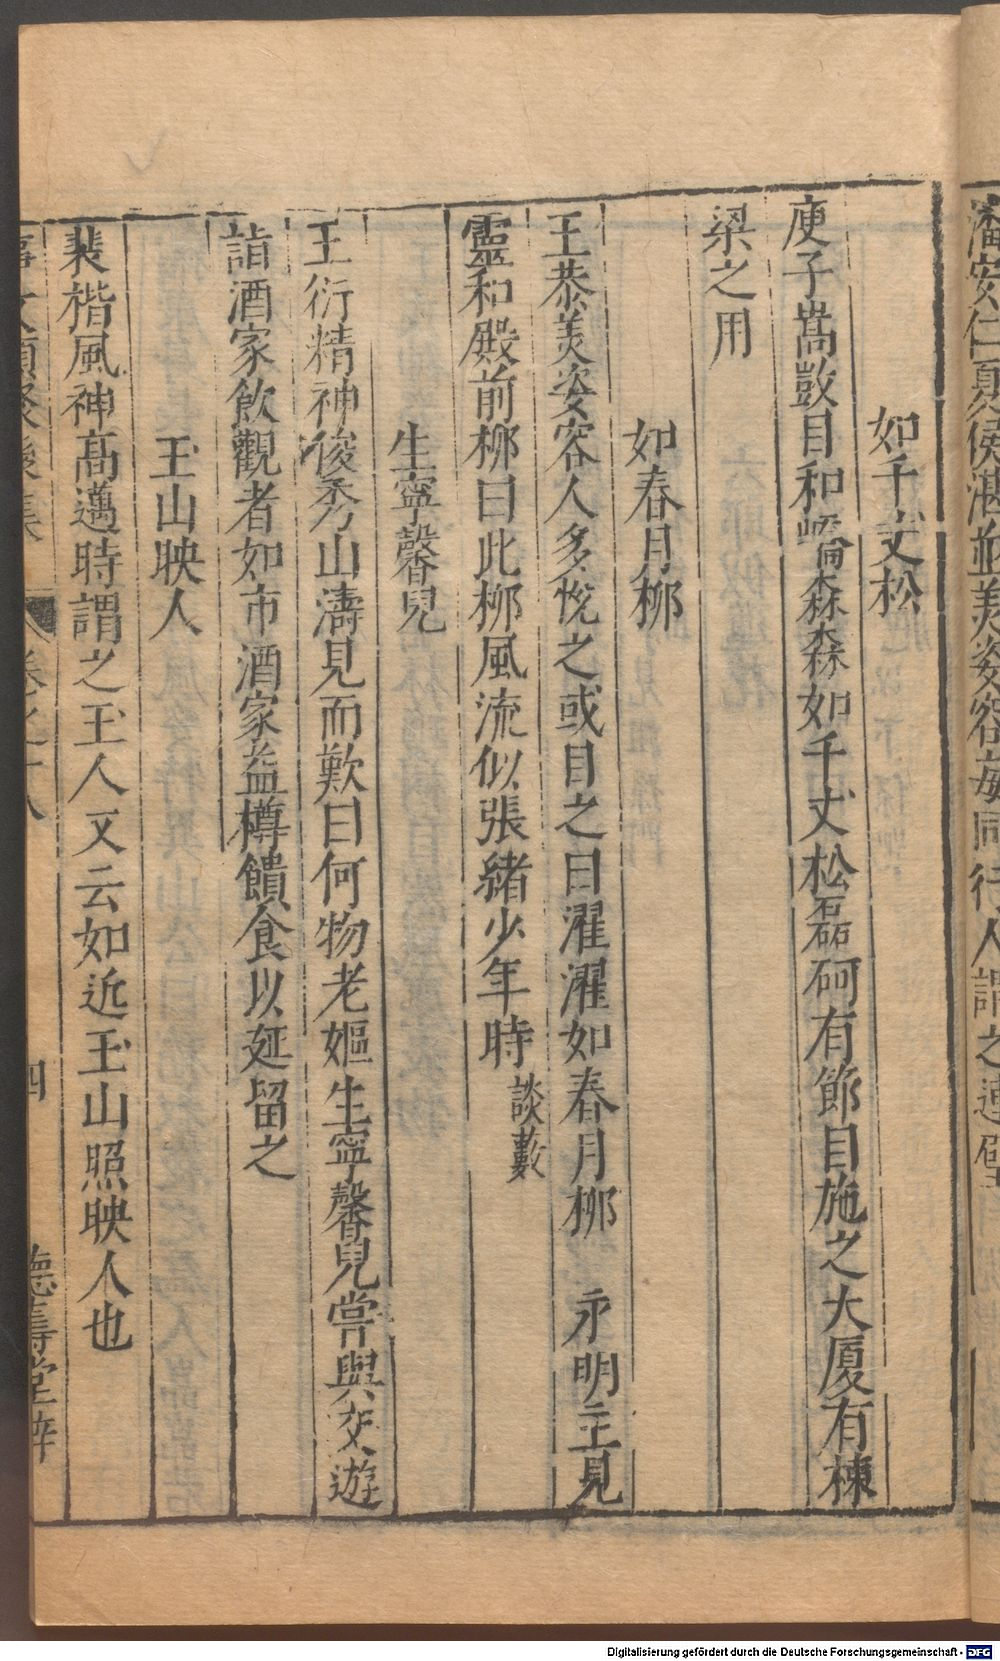 潘安仁夏侯湛並美姿容每同行人謂之連璧
如千丈松
庾子嵩敳目和嶠森森如千丈松磊砢有節目施之大厦有棟
梁之用
如春月柳
王恭美姿容人多悅之或目之曰濯濯如春月柳　永明主見
靈和殿前柳曰此柳風流似張緒少年時談數
生寧馨兒
王衍精神俊秀山濤見而歎曰何物老嫗生寧馨兒嘗與交遊
詣酒家飲觀者如市酒家益樽饋食以延留之
玉山映人
裴楷風神高邁時謂之玉人又云如近玉山照映人也
事文類聚後集　卷之十八　四　德壽堂梓
Digitalisierung gefördert durch die Deutsche Forschungsgemeinschaft - DFG